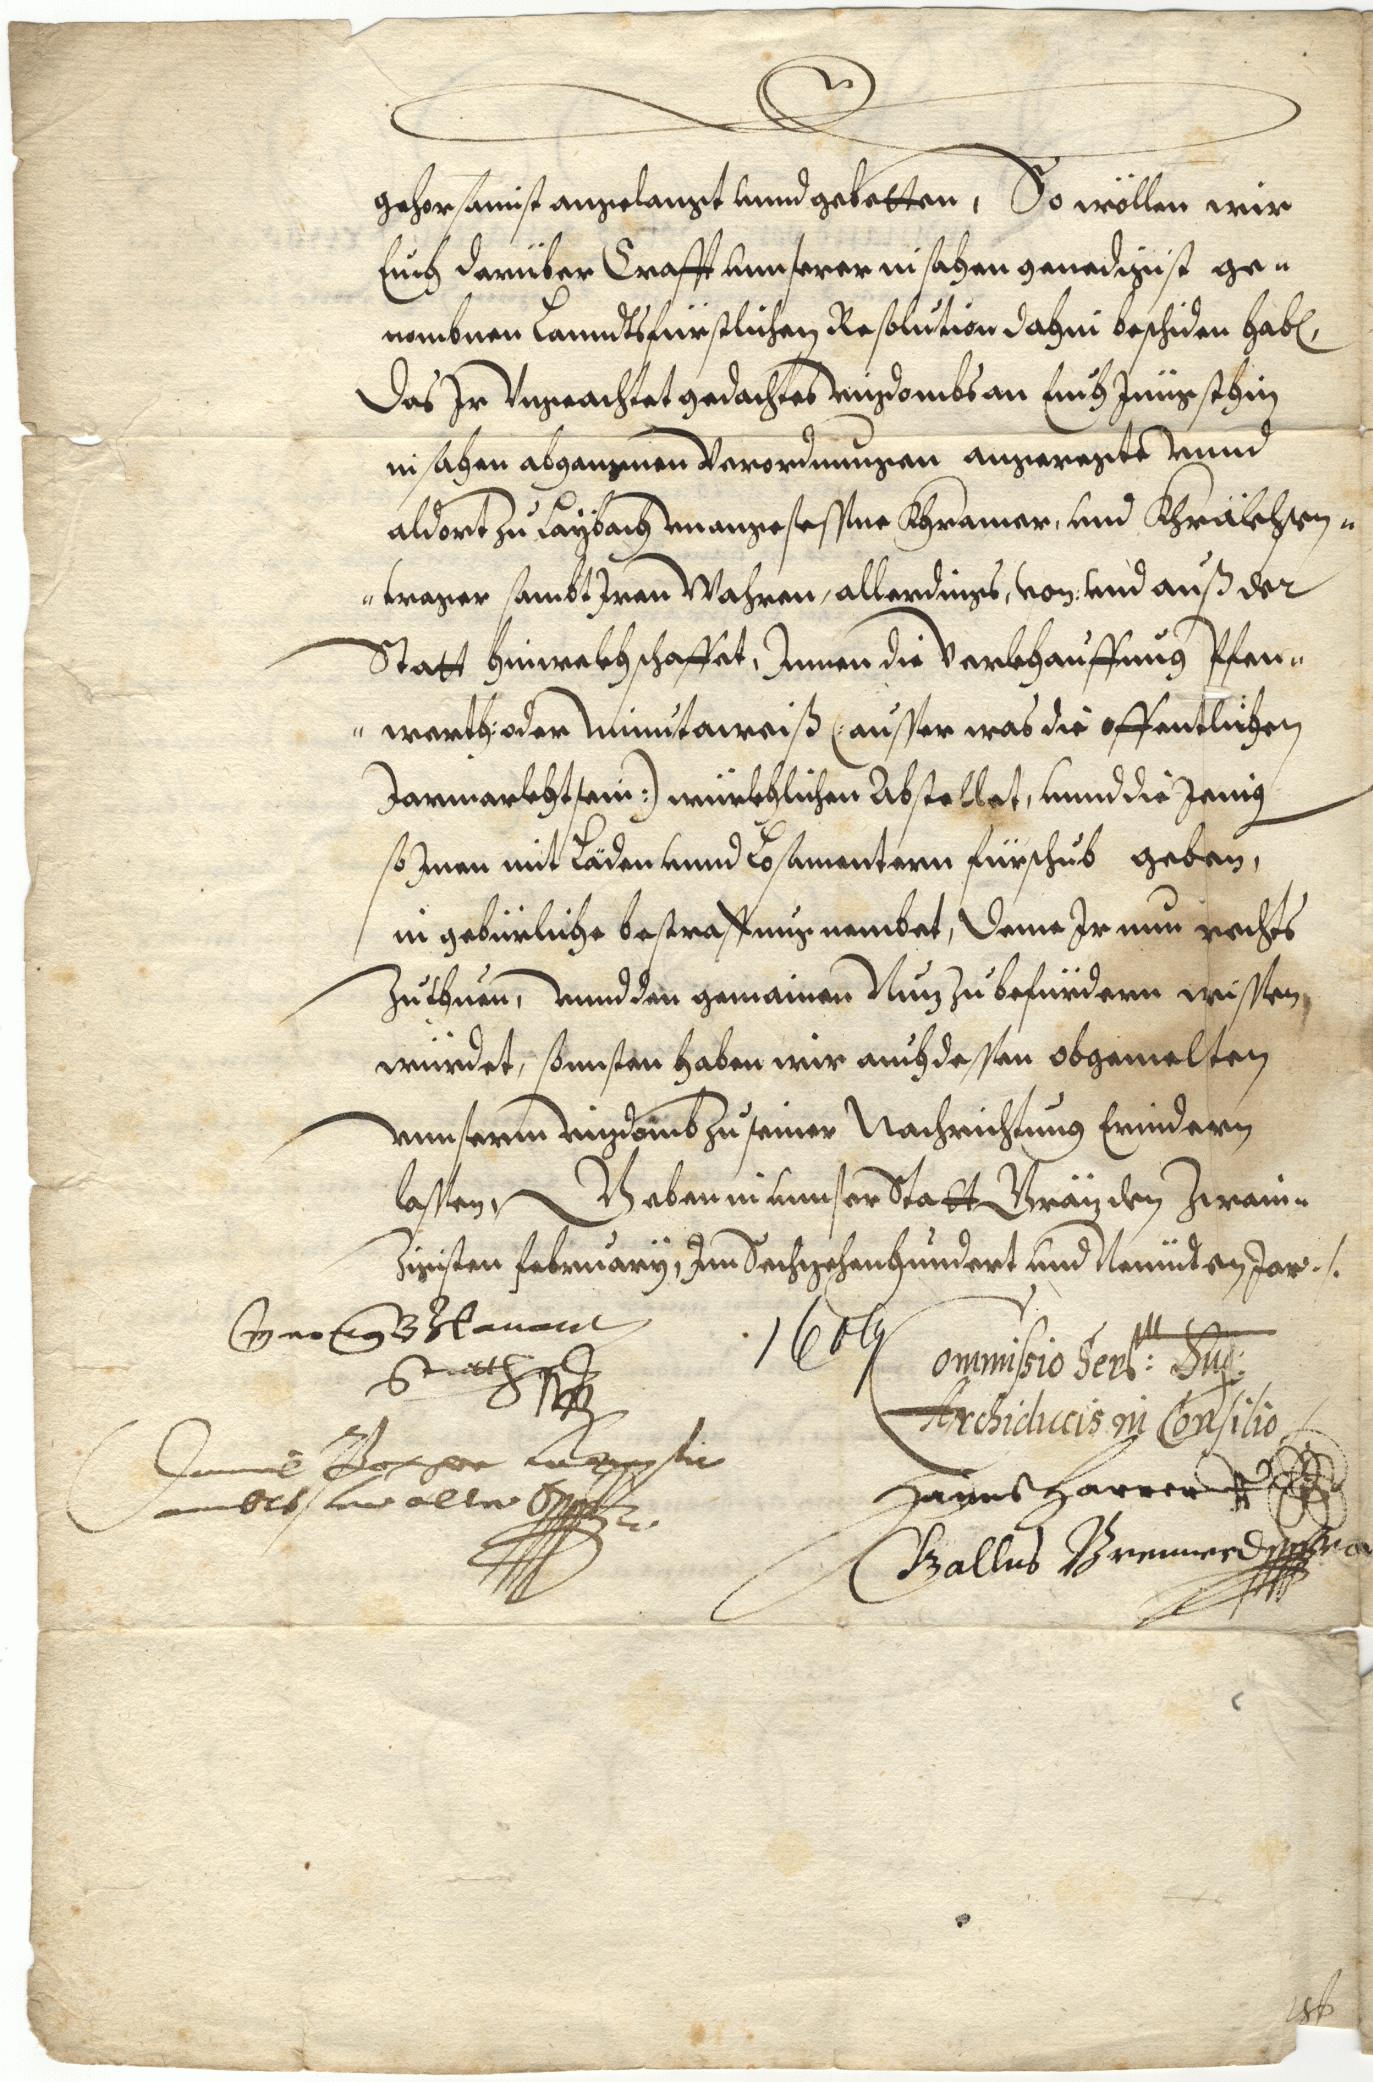 gehorsamist angelangt vnnd gebetten, So wöllen wir
Euch darüber Crafft vnnserer in sachen genedigist ge-
nombnen Lanndtsfürstlichen Resolution dahin beschiden habn,
Das Ir Vngeachtet gedachtes vizdombs an Euch Jüngsthin
in sachen abgangnen Verordnungen angeregte vnnd
aldort zu Laybach vnangesessne Khramer, vnd Khräxen-
-trager sambt Iren Wahren, allerdings, von: vnd auß der
Statt hinwekh schaffet, Innen die Verkhauffung Pfen-
-werth: oder Minutaweiß (: ausser was die offentlichen
Jarmarkht sein:) würkhlichen Abstellet, vnnd die Jenig
so Inen mit Läden vnnd Losamentern fürschub geben,
in gebürliche bestraffung nembet, Deme Ir nun rechts
Zuthuen, vnnd den gemainen Nuz zu befürdern wissen
würdet, sonnsten haben wir auch dessen obgemelten
vnnserm vizdomb zu seiner Nachrichtung Erindern
lassen, Geben in vnnser Statt Gräz den Zwain-
Zigisten february, Im Sechzehenhundert vnd Neünten Jar ./.
1609
Commissio Ser.mi Dni:
Archiducis in Consilio
Hanns Harrer
Gallus